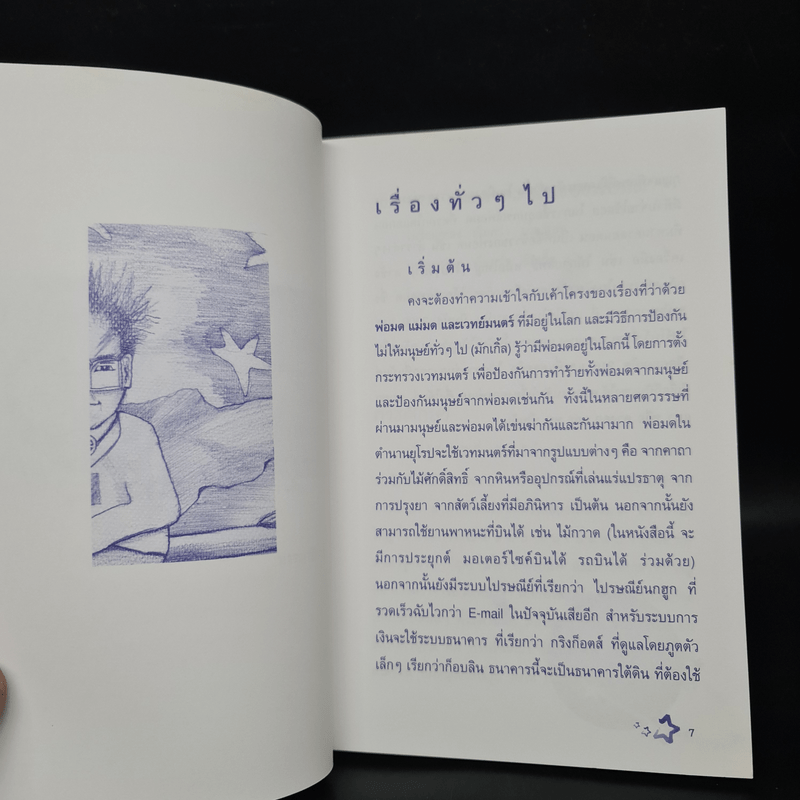 เรื่องทั่วๆ ไป
เริ่มต้น
คงจะต้องทำความเข้าใจกับเค้าโครงของเรื่องที่ว่าด้วย
พ่อมด แม่มด และเวทย์มนตร์ ที่มีอยู่ในโลก และมีวิธีการป้องกัน
ไม่ให้มนุษย์ทั่วๆ ไป (มักเกิ้ล) รู้ว่ามีพ่อมดอยู่ในโลกนี้ โดยการตั้ง
กระทรวงเวทมนตร์ เพื่อป้องกันการทำร้ายทั้งพ่อมดจากมนุษย์
และป้องกันมนุษย์จากพ่อมดเช่นกัน ทั้งนี้ในหลายศตวรรษที่
ผ่านมามนุษย์และพ่อมดได้เข่นฆ่ากันและกันมามาก พ่อมดใน
ตำนานยุโรปจะใช้เวทมนตร์ที่มาจากรูปแบบต่างๆ คือ จากคาถา
ร่วมกับไม้ศักดิ์สิทธิ์ จากหินหรืออุปกรณ์ที่เล่นแร่แปรธาตุ จาก
การปรุงยา จากสัตว์เลี้ยงที่มีอภินิหาร เป็นต้น นอกจากนั้นยัง
สามารถใช้ยานพาหนะที่บินได้ เช่น ไม้กวาด (ในหนังสือนี้ จะ
มีการประยุกต์ มอเตอร์ไซค์บินได้ รถบินได้ ร่วมด้วย)
นอกจากนั้นยังมีระบบไปรษณีย์ที่เรียกว่า ไปรษณีย์นกฮูก ที่
รวดเร็วฉับไวกว่า E-mail ในปัจจุบันเสียอีก สำหรับระบบการ
เงินจะใช้ระบบธนาคาร ที่เรียกว่า กริงก็อตส์ ที่ดูแลโดยภูตตัว
เล็กๆ เรียกว่าก็อบลิน ธนาคารนี้จะเป็นธนาคารใต้ดิน ที่ต้องใช้
7